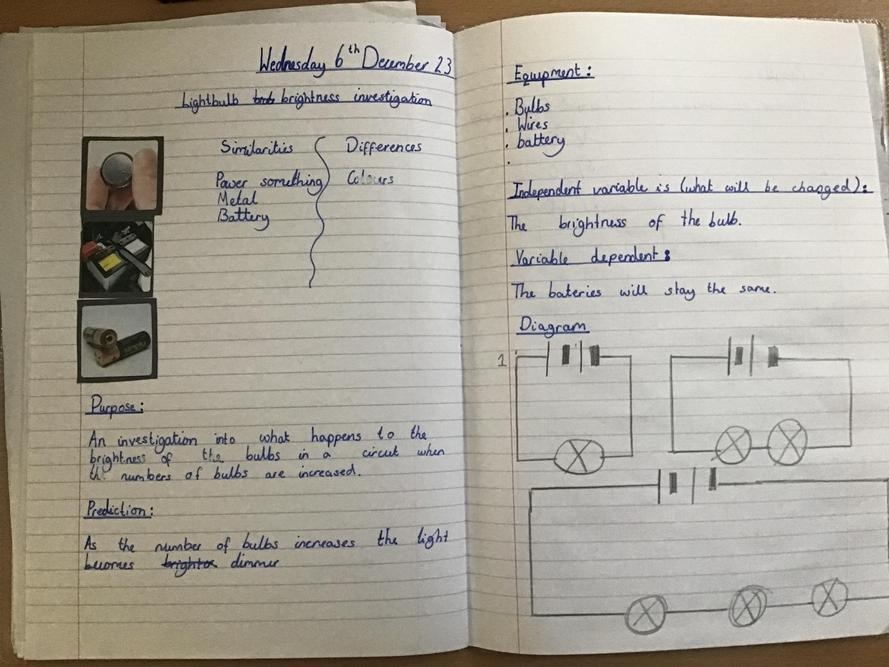 Wednesday 6th December 23
Lightbulb brightness investigation
Similarities
Power something
Metal
Battery
Differences
Colours
Purpose:
An investigation into what happens to the
brightness of the bulbs in a circuit when
the numbers of bulbs are increased.
Prediction:
As the number of bulbs increases the light
becomes brighter dimmer
Equipment:
. Bulbs
. Wires
. battery
.
Independent variable is (what will be changed):
The brightness of the bulb.
Variable dependent:
The bateries will stay the same.
Diagram
1